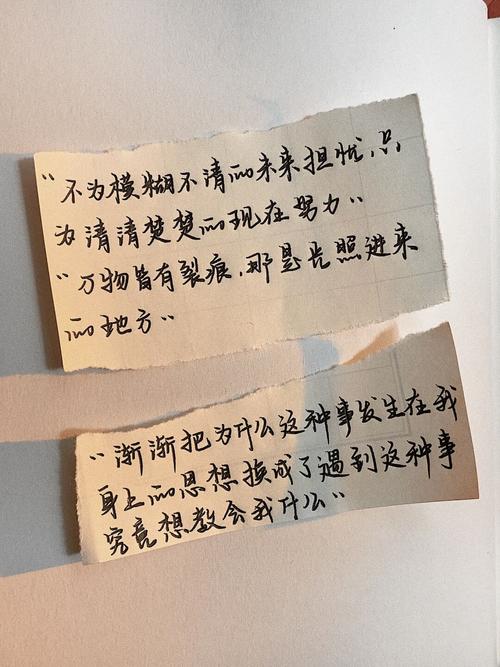 “不为模糊不清的未来担忧,只
为清清楚楚的现在努力”
“万物皆有裂痕,那是光照进来
的地方”
“渐渐把为什么这种事发生在我
身上的思想换成了遇到这种事
究竟想教会我什么”